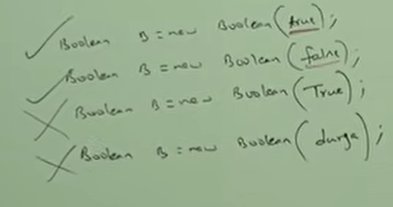 Boolean B = new Boolean(true);
Boolean B = new Boolean(false);
Boolean B = new Boolean(True);
Boolean B = new Boolean(durga);